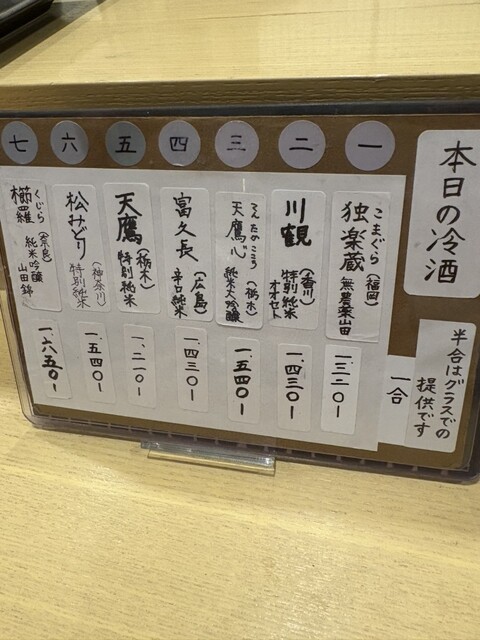 本日の冷酒
半合はグラスでの
提供です
一合
一
こまぐら
独楽蔵
(福岡)
無農薬山田
一、三二〇ー
二
川鶴
(香川)
特別純米
オオセト
一、四三〇ー
三
てんたかこころ
天鷹心
(栃木)
純米大吟醸
一、五四〇ー
四
富久長
(広島)
辛口純米
一、四三〇ー
五
天鷹
(栃木)
特別純米
一、二一〇ー
六
松みどり
(神奈川)
特別純米
一、五四〇ー
七
くじら
櫛羅
(奈良)
純米吟醸
山田錦
一、六五〇ー